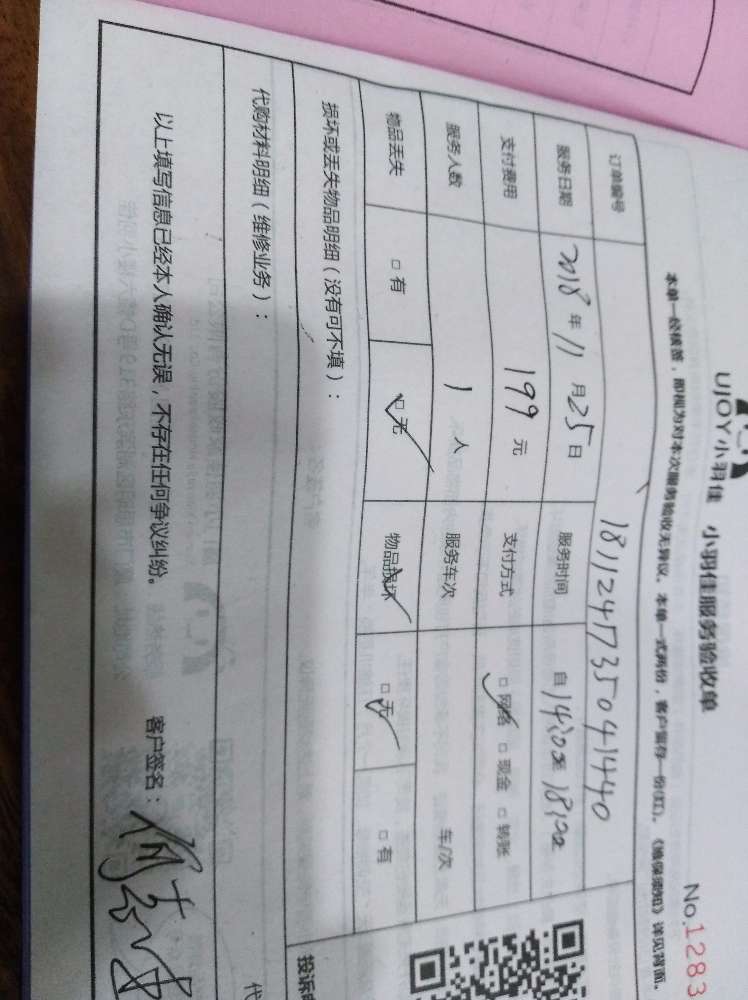 UJOY小羽佳 小羽佳服务验收单
No.1283
本单一经核签，即视为对本次服务验收无异议。本单一式两份，客户留存一份(红)。《维保须知》详见背面。
订单编号 181124173504 1440
服务日期 2018年11月25日 服务时间 自14:00至18:00
支付费用 199元 支付方式 □网络 □现金 □转账
服务人数 1人 服务车次 车/次
物品丢失 □有 □无 物品损坏 □无 □有
损坏或丢失物品明细（没有可不填）：
代购材料明细（维修业务）：
代
投诉
以上填写信息已经本人确认无误，不存在任何争议纠纷。 客户签名：